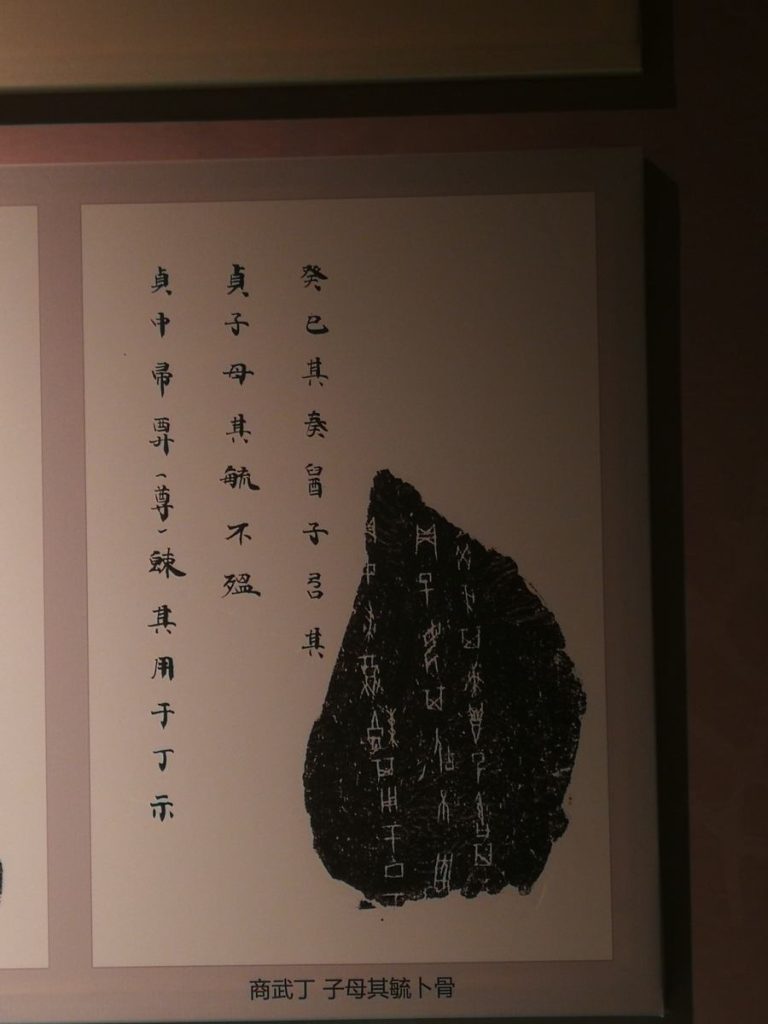 癸巳其奏子召其
貞子母其毓不殟
貞中帚（尊）其用于丁示
商武丁 子母其毓卜骨